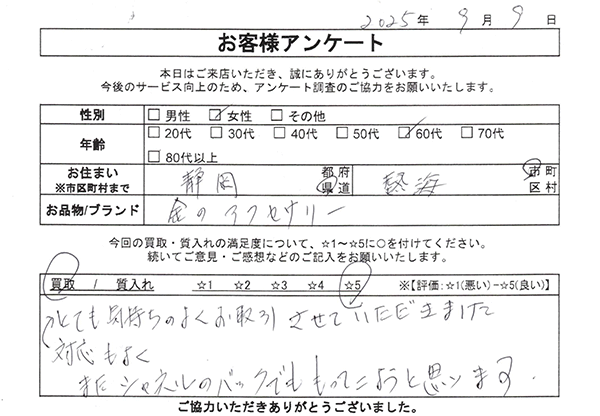 2025年 9月 9日
お客様アンケート
本日はご来店いただき、誠にありがとうございます。
今後のサービス向上のため、アンケート調査のご協力をお願いいたします。
性別 □男性 ☑女性 □その他
年齢 □20代 □30代 □40代 □50代 ☑60代 □70代
□80代以上
お住まい ※市区町村まで 静岡 都府県道 熱海 市町区村
お品物/ブランド 金のアクセサリー
今回の買取・質入れの満足度について、☆1～☆5に○を付けてください。
続いてご意見・ご感想などのご記入をお願いします。
買取 / 質入れ ☆1 ☆2 ☆3 ☆4 ☆5 ※【評価:☆1(悪い)−☆5(良い)】
とても気持ちのよくお取引させていただきました
対応もよく
またシャネルのバックでももってこようと思います。
ご協力いただきありがとうございました。